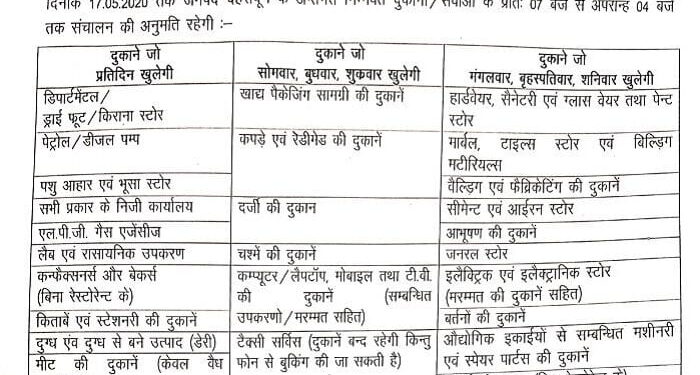 दिनांक 17.05.2020 तक जनपद के अन्तर्गत निम्नवत दुकानों/सेवाओं के प्रातः 07 बजे से अपरान्ह 04 बजे
तक संचालन की अनुमति रहेगी :–
दुकाने जो
प्रतिदिन खुलेगी
दुकाने जो
सोगवार, बुधवार, शुकवार खुलेगी
दुकाने जो
मंगलवार, बृहस्पतिवार, शनिवार खुलेगी
डिपार्टमेंटल/
ड्राई फ्रूट/किराना स्टोर
खाद्य पैकेजिंग सामग्री की दुकानें
हार्डवेयर, सैनेटरी एवं ग्लास वेयर तथा पेन्ट
स्टोर
पेट्रोल/डीजल पम्प
कपड़े एवं रेडीमेड की दुकानें
मार्बल, टाइल्स स्टोर एवं बिल्डिग
मटीरियल्स
पशु आहार एवं भूसा स्टोर
वैल्डिग एवं फैब्रिकेटिंग की दुकानें
सभी प्रकार के निजी कार्यालय
दर्जी की दुकान
सीमेन्ट एवं आईरन स्टोर
एल.पी.जी. गैस एजेंसीज
आभूषण की दुकानें
लैब एवं रासायनिक उपकरण
चश्में की दुकानें
जनरल स्टोर
कन्फैक्सनर्स और बेकर्स
(बिना रेस्टोरेन्ट के)
कम्प्यूटर/लैपटॉप, मोबाइल तथा टी.वी.
की दुकानें (सम्बन्धित
उपकरणो/मरम्मत सहित)
इलैक्ट्रिक एवं इलैक्ट्रानिक स्टोर
(मरम्मत की दुकानें सहित)
किताबें एवं स्टेशनरी की दुकानें
बर्तनों की दुकानें
दुग्ध एंव दुग्ध से बने उत्पाद (डेरी)
टैक्सी सर्विस (दुकानें बन्द रहेगी किन्तु
फोन से बुकिंग की जा सकती है)
औद्योगिक इकाईयों से सम्बन्धित मशीनरी
एवं स्पेयर पार्टस की दुकानें
मीट की दुकानें (केवल वैध